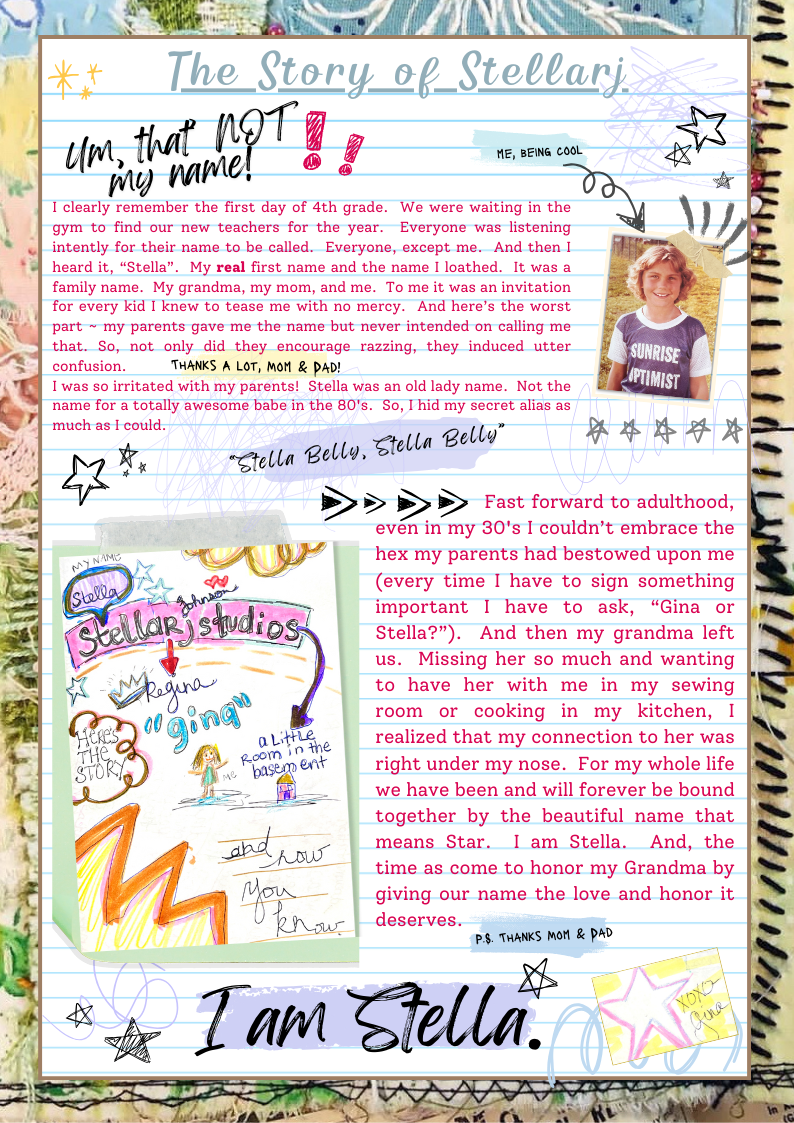 The Story of Stellarj
Um, that NOT
my name!
!!
ME, BEING COOL
I clearly remember the first day of 4th grade. We were waiting in the
gym to find our new teachers for the year. Everyone was listening
intently for their name to be called. Everyone, except me. And then I
heard it, “Stella”. My real first name and the name I loathed. It was a
family name. My grandma, my mom, and me. To me it was an invitation
for every kid I knew to tease me with no mercy. And here’s the worst
part ~ my parents gave me the name but never intended on calling me
that. So, not only did they encourage razzing, they induced utter
confusion.
THANKS A LOT, MOM & DAD!
I was so irritated with my parents! Stella was an old lady name. Not the
name for a totally awesome babe in the 80's. So, I hid my secret alias as
much as I could.
SUNRISE
OPTIMIST
“Stella Belly, Stella Belly”
Fast forward to adulthood,
even in my 30's I couldn’t embrace the
hex my parents had bestowed upon me
(every time I have to sign something
important I have to ask, “Gina or
Stella?”). And then my grandma left
us. Missing her so much and wanting
to have her with me in my sewing
room or cooking in my kitchen, I
realized that my connection to her was
right under my nose. For my whole life
we have been and will forever be bound
together by the beautiful name that
means Star. I am Stella. And, the
time as come to honor my Grandma by
giving our name the love and honor it
deserves.
P.S. THANKS MOM & DAD
MY NAME
Stella
Johnson
Stellarj studios
Regina
"gina"
HERE'S
THE
STORY
ME
a LittLe
Room in the
basement
and now
you
know.
I am Stella.
XOXO
Gina